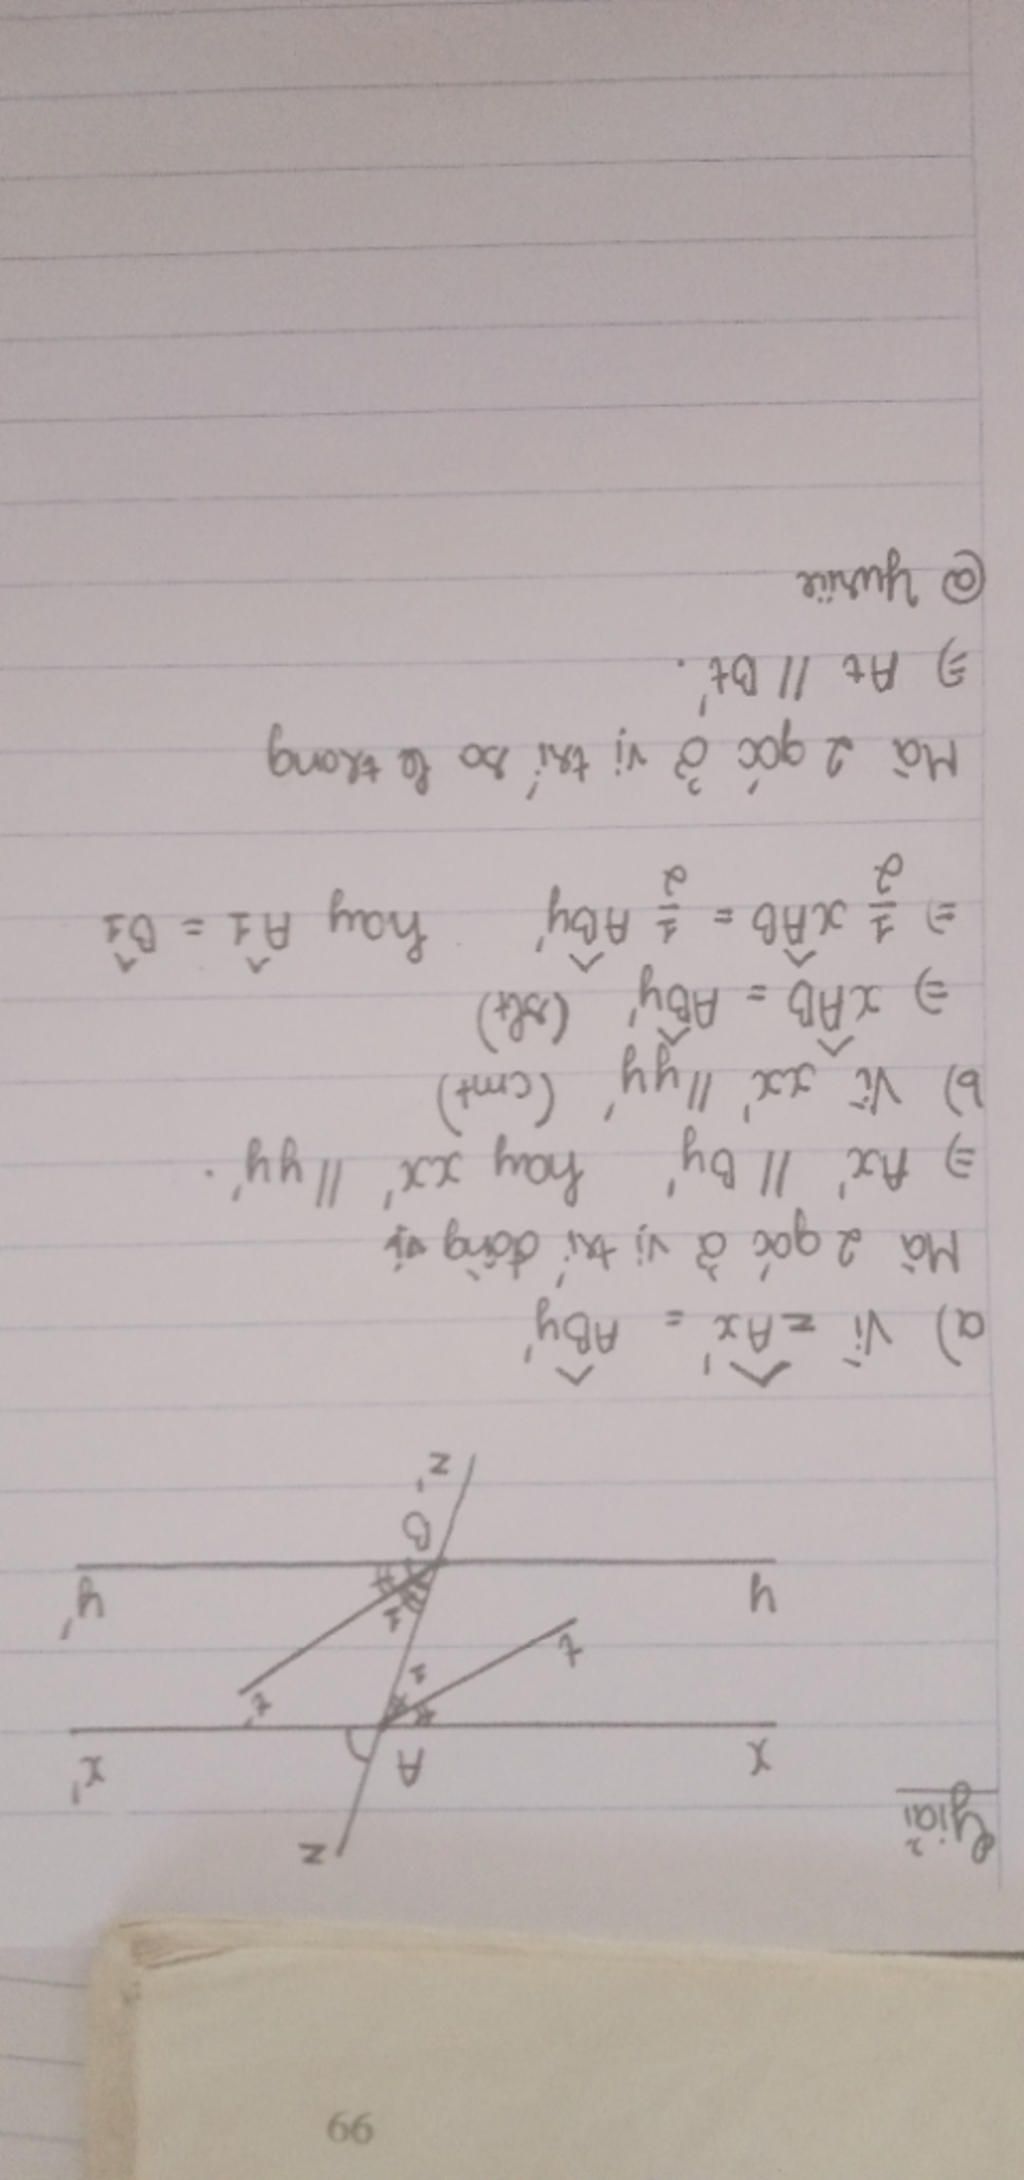 66
Giải
z
x A x'
t t'
1
1
y y'
B
z'
a) Vì zAx' = ABy'
Mà 2 góc ở vị trí đồng vị
⇒ Ax' // By' hay xx' // yy'.
b) Vì xx' // yy' (cmt)
⇒ xAB = ABy' (slt)
⇒ 1/2 xAB = 1/2 ABy' hay Â1 = B̂1
Mà 2 góc ở vị trí so le trong
⇒ At // Bt'.
@ Yuniie